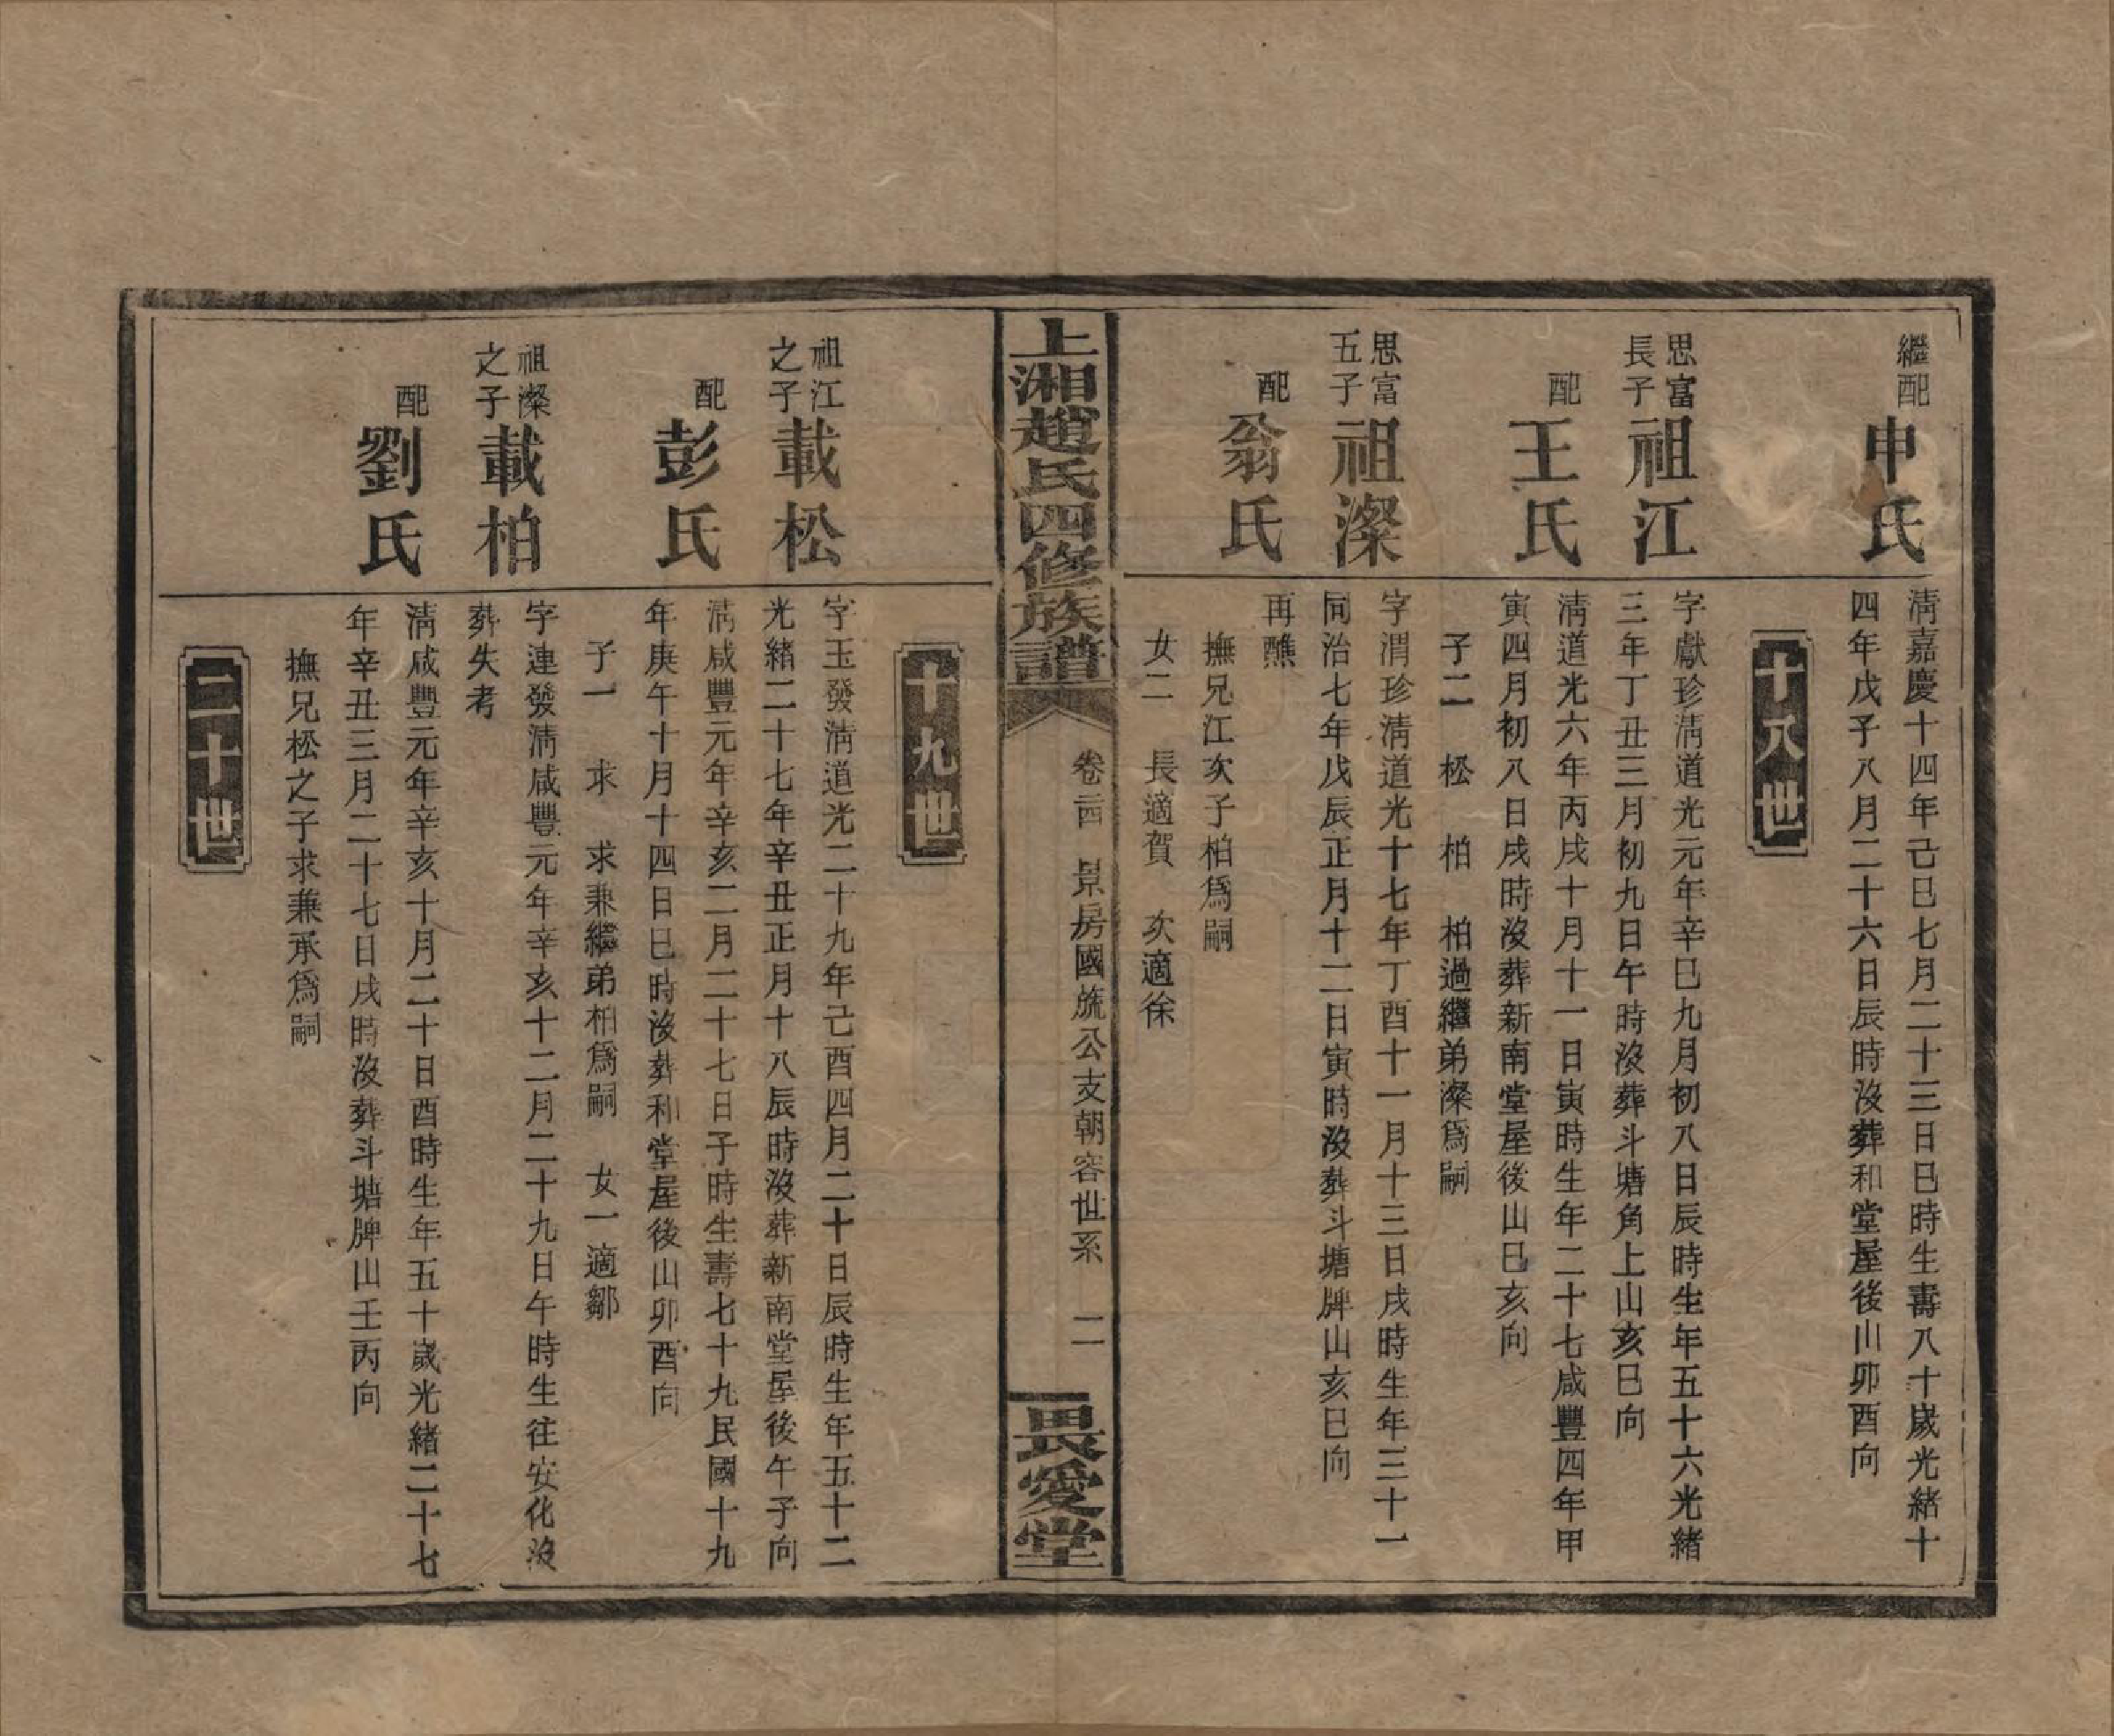 繼配
申氏
清嘉慶十四年己巳七月二十三日巳時生壽八十歲光緒十
四年戊子八月二十六日辰時沒葬和堂屋後山卯酉向
十八世
思富
長子
祖江
字獻珍清道光元年辛巳九月初八日辰時生年五十六光緒
三年丁丑三月初九日午時沒葬斗塘角上山亥巳向
配
王氏
清道光六年丙戌十月十一日寅時生年二十七咸豐四年甲
寅四月初八日戌時沒葬新南堂屋後山巳亥向
子二 松 柏 柏過繼弟澯爲嗣
思富
五子
祖澯
字渭珍清道光十七年丁酉十一月十三日戌時生年三十一
同治七年戊辰正月十二日寅時沒葬斗塘牌山亥巳向
配
翁氏
再醮
撫兄江次子柏爲嗣
女二 長適賀 次適徐
上湘趙氏四修族譜
卷 景房國旒公支朝容世系 二
畏愛堂
十九世
祖江
之子
載松
字玉發清道光二十九年己酉四月二十日辰時生年五十二
光緒二十七年辛丑正月十八辰時沒葬新南堂屋後午子向
配
彭氏
清咸豐元年辛亥二月二十七日子時生壽七十九民國十九
年庚午十月十四日巳時沒葬和堂屋後山卯酉向
子一 求 求兼繼弟柏爲嗣 女一適鄒
祖澯
之子
載柏
字連發清咸豐元年辛亥十二月二十九日午時生往安化沒
葬失考
配
劉氏
清咸豐元年辛亥十月二十日酉時生年五十歲光緒二十七
年辛丑三月二十七日戌時沒葬斗塘牌山壬丙向
撫兄松之子求兼承爲嗣
二十世